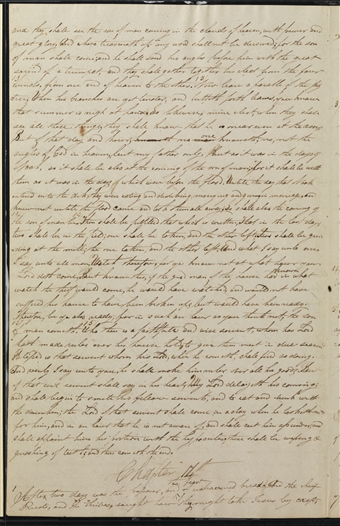 and they shall see the son of man coming in the clouds of heaven, with power and
great glory, and who treasureth up my word shall not be deceived, for the son
of man shall come, and he shall send his angels before him with the great
sound of a trumpet, and they shall gather together his elect from the four
winds, from one end of heaven to the other. Now learn a parable of the fig
tree, when his branches are yet tender, and putteth forth leaves, ye know
that summer is nigh at hand, so likewise mine elect, when they shall
see all these things, they shall know that he is near even at the doors
But of that day and hour no one knoweth, no, not the
angles of God in heaven, but my father only, But as it was in the days of
Noah, so it shall be also at the coming of the son of man, for it shall be with
them as it was in the days which were before the flood, Until the day that Noah
entered into the ark, they were eating and drinking, marrying and giving in marriage, and
knew not until the flood came and took them all away, so shall also the coming of
the son of man be, Then shall be fulfilled that which is written, that in the last days,
two shall be in the field, one shall be taken and the other left, two shall be grin
ding at the mill, the one taken and the other left, And what I say unto one
I say unto all men, Watch therefore, for ye know not at what hour your
Lord doth come, But know this, if the good man of the house had known in what
watch the thief would come, he would have watched, and would not have
suffered his house to have been broken up, but would have been ready,
Therefore, be ye also ready, for in such an hour as you think not the son
of man cometh, Who then is a faithful and wise servant, whom his Lord
hath made ruler over his house hold, to give them meat in due season
Blessed is that servant whom his Lord, when he cometh, shall find so doing,
And verily I say unto you, he shall make him ruler over all his goods, But
if that evil servant shall say in his heart, My Lord delayeth his coming,
and shall begin to smite his fellow servants, and to eat and drink with
the drunken, the Lord of that servant shall come in a day when he looketh not
for him, and in an hour that he is not aware of, and shall cut him asunder, and
shall appoint him his portion with the hypocrites, there shall be weeping &
gnashing of teeth, and thus cometh the end
Chapter 14th
After two days was the passover, and of unleavened bread, and the chief
Priests, and the Scribes sought how they might take Jesus by craft